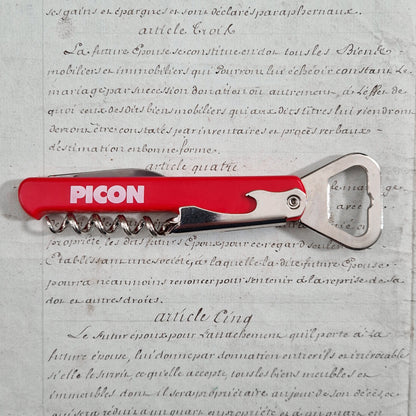 ses gains et épargnes et sont déclarés paraphernaux.
article Trois
La future Epouse se constitue en dot tous les Biens
mobiliers et immobiliers qui Pourront lui échéoir constant Le
mariage par succession donation ou autrement, à L'effet de
quoi ceux des dits biens mobiliers qui aux dits titres lui viendront
devront être constatés par inventaires et procès verbaux
destimation en bonne forme.
article quatre
PICON
propriété les du futurs Epoux pour ce regard seule
Etablissant une société, à laquelle la dite future Epouse
pourra néanmoins renoncer pour s'en tenir à la reprise de sa
dot et autres droits.
article Cinq
Le futur époux pour L'attachement qu'il porte à La
future épouse, lui donne par donnation entrevifs et irrévocable
s'elle le survit, ce qu'elle accepte tous les biens meubles et
immeubles dont il sera propriétaire au jour de son décès, ce
qui sera réduit à un quart en